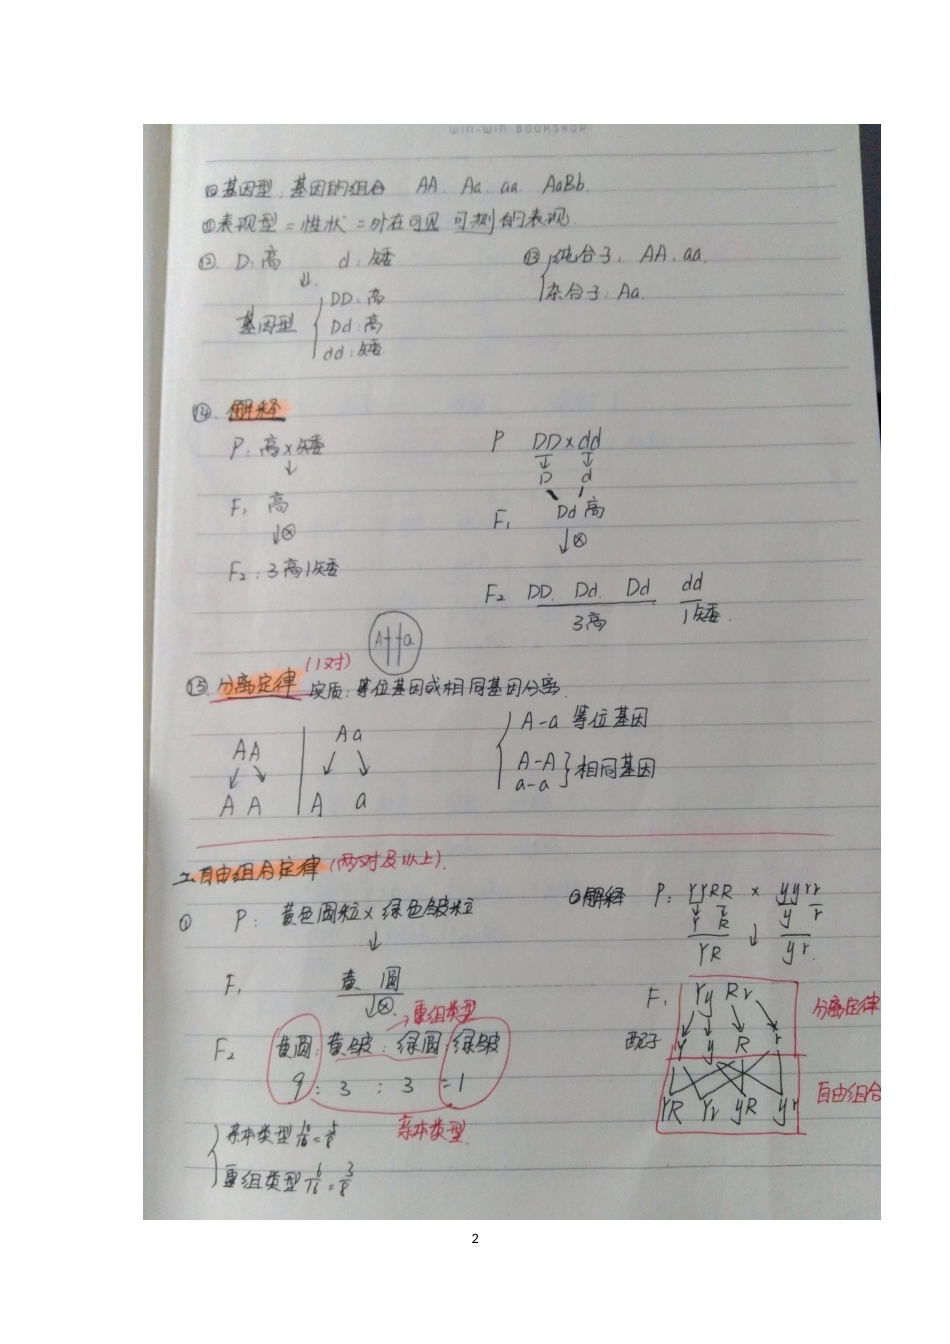 WIN-WIN BOOKSHOP
⑩基因型:基因的组合 AA. Aa. aa. AaBb.
⑪表现型=性状=外在可见 可测的表现.
⑫. D:高 d:矮
⑬ 纯合子: AA、aa.
杂合子: Aa.
↓
基因型 DD:高
Dd:高
dd:矮
⑭. 解释
P:高×矮
↓
F₁ 高
↓⊗
F₂:3高1矮
P DD×dd
↓ ↓
D d
F₁ Dd 高
↓⊗
F₂ DD. Dd. Dd dd
3高 1矮.
A a
⑮. 分离定律(1对) 实质:等位基因或相同基因分离.
AA
↙ ↘
A A
Aa
↙ ↘
A a
A-a 等位基因
A-A
a-a
相同基因
二.自由组合定律(两对及以上).
① P: 黄色圆粒×绿色皱粒
↓
F₁ 黄 圆
↓⊗
→重组类型
F₂ 黄圆:黄皱:绿圆:绿皱
9:3:3=1
亲本类型
亲本类型 10/16=5/8
重组类型 6/16=3/8
②解释 P: YYRR × yyrr
Y R y r
YR ↓ yr.
F₁ Yy Rr 分离定律
配子 Y y R r
YR Yr yR yr 自由组合
2